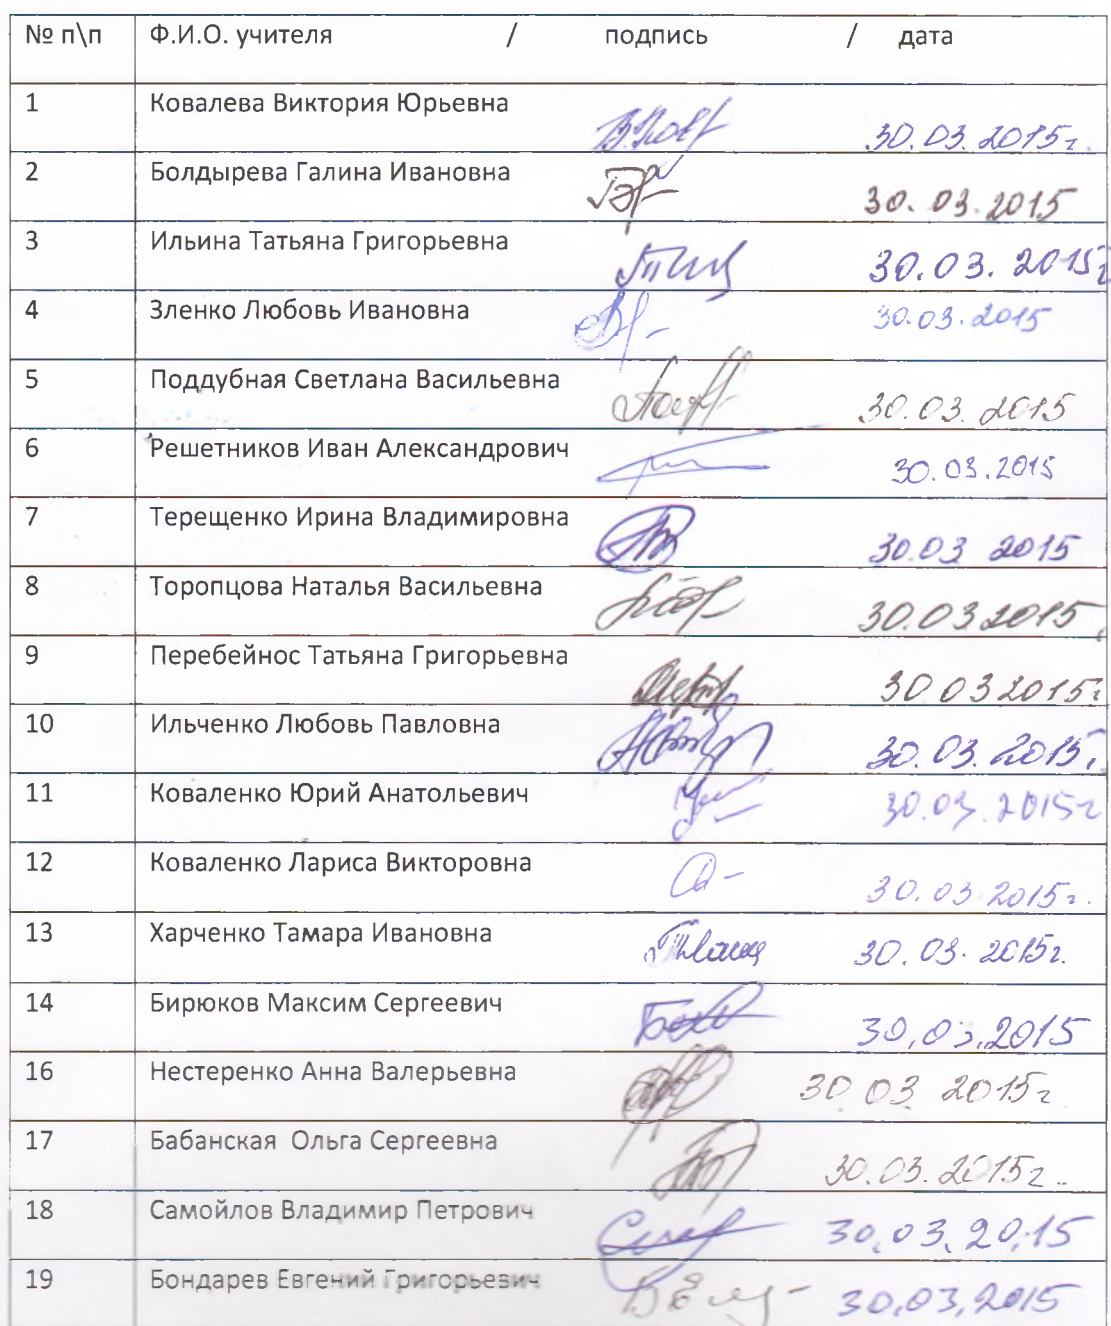 № п\п Ф.И.О. учителя / подпись / дата
1 Ковалева Виктория Юрьевна 30.03.2015г.
2 Болдырева Галина Ивановна 30.03.2015
3 Ильина Татьяна Григорьевна 30.03.2015г
4 Зленко Любовь Ивановна 30.03.2015
5 Поддубная Светлана Васильевна 30.03.2015
6 Решетников Иван Александрович 30.03.2015
7 Терещенко Ирина Владимировна 30.03 2015
8 Торопцова Наталья Васильевна 30.03.2015.
9 Перебейнос Татьяна Григорьевна 30 03 2015г
10 Ильченко Любовь Павловна 30.03.2015г.
11 Коваленко Юрий Анатольевич 30.03.2015г
12 Коваленко Лариса Викторовна 30.03.2015г.
13 Харченко Тамара Ивановна 30.03.2015г.
14 Бирюков Максим Сергеевич 30.03.2015
16 Нестеренко Анна Валерьевна 30 03 2015г
17 Бабанская Ольга Сергеевна 30.03.2015г.
18 Самойлов Владимир Петрович 30.03.2015
19 Бондарев Евгений Григорьевич 30.03.2015